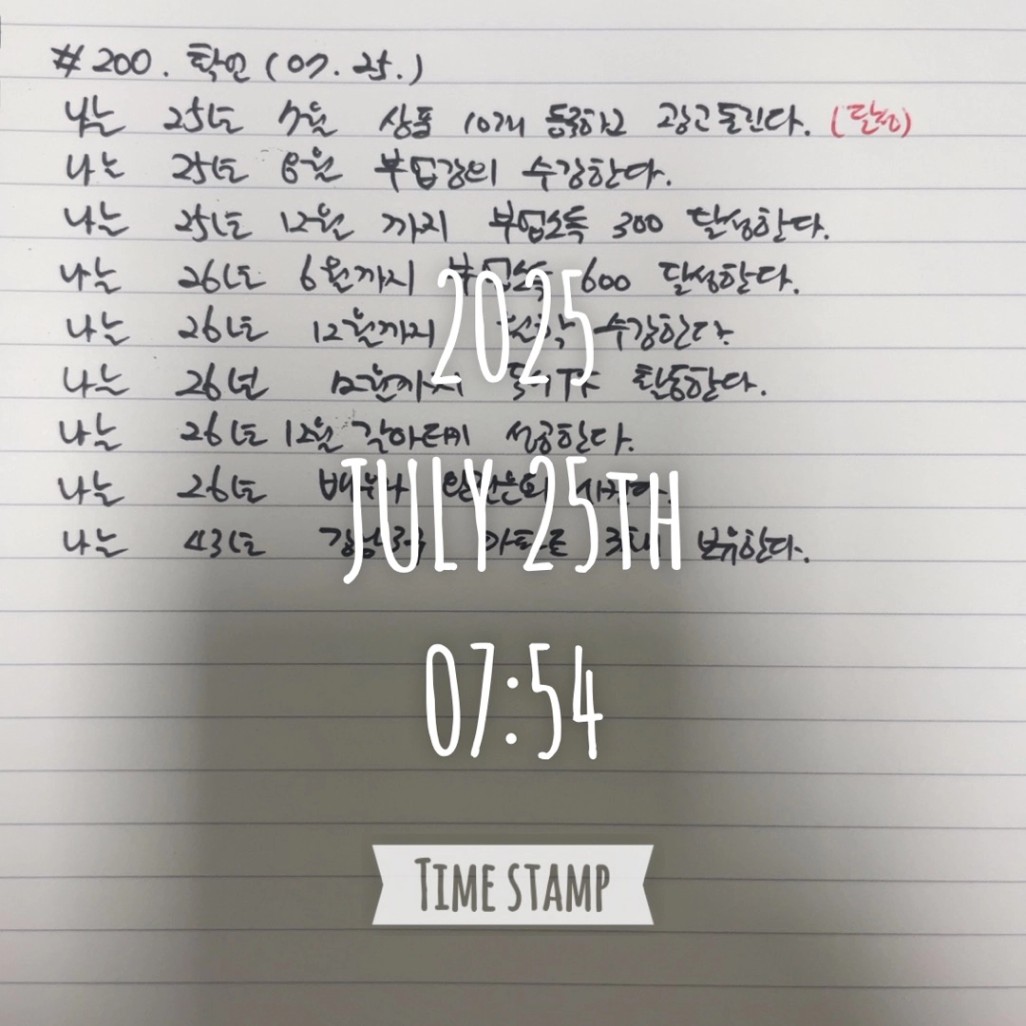 #200. 확언 (07. 25.)
나는 25년 7월 상품 10개 등록하고 광고돌린다. (달성)
나는 25년 8월 부업강의 수강한다.
나는 25년 12월 까지 부업소득 300 달성한다.
나는 26년 6월까지 부업소득 600 달성한다.
나는 26년 12월까지 수강한다.
나는 26년 12월까지 활동한다.
나는 26년 12월 갈아타기 성공한다.
나는 26년
나는 43년 아파트 3채 보유한다.
2025
JULY 25TH
07:54
TIME STAMP